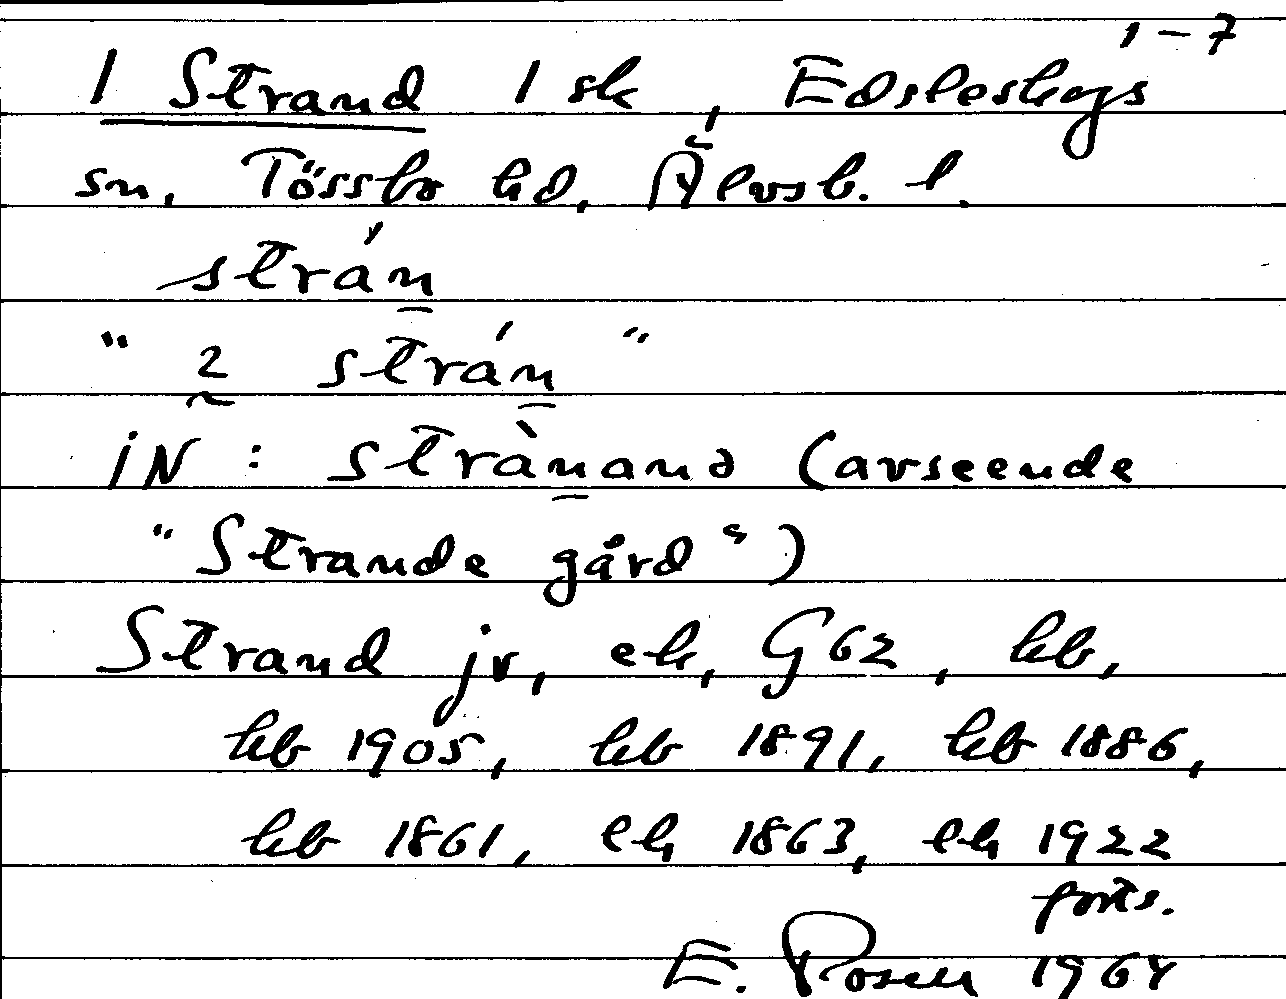 1-7
1 Strand 1 sk, Edsleskogs
sn. Tössbo hd, Älvsb. l.
strán
" 2 strán "
iN: strànand (avseende
"Strande gård")
Strand jr, ek, G62, kb,
kb 1905, kb 1891, kb 1886,
kb 1861, ek 1863, ek 1922
forts.
E. Rosell 1964